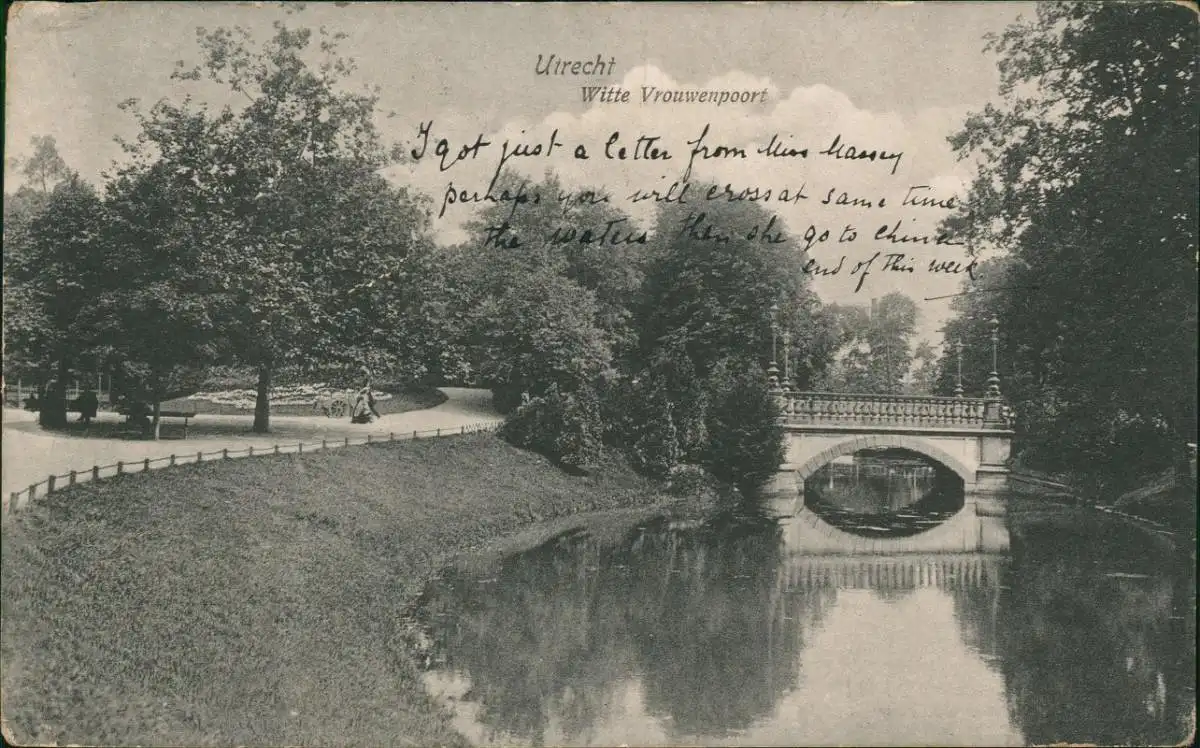 Utrecht
Witte Vrouwenpoort
I got just a letter from Miss Massey
perhaps you will cross at same time
the waters then she go to China
end of this week